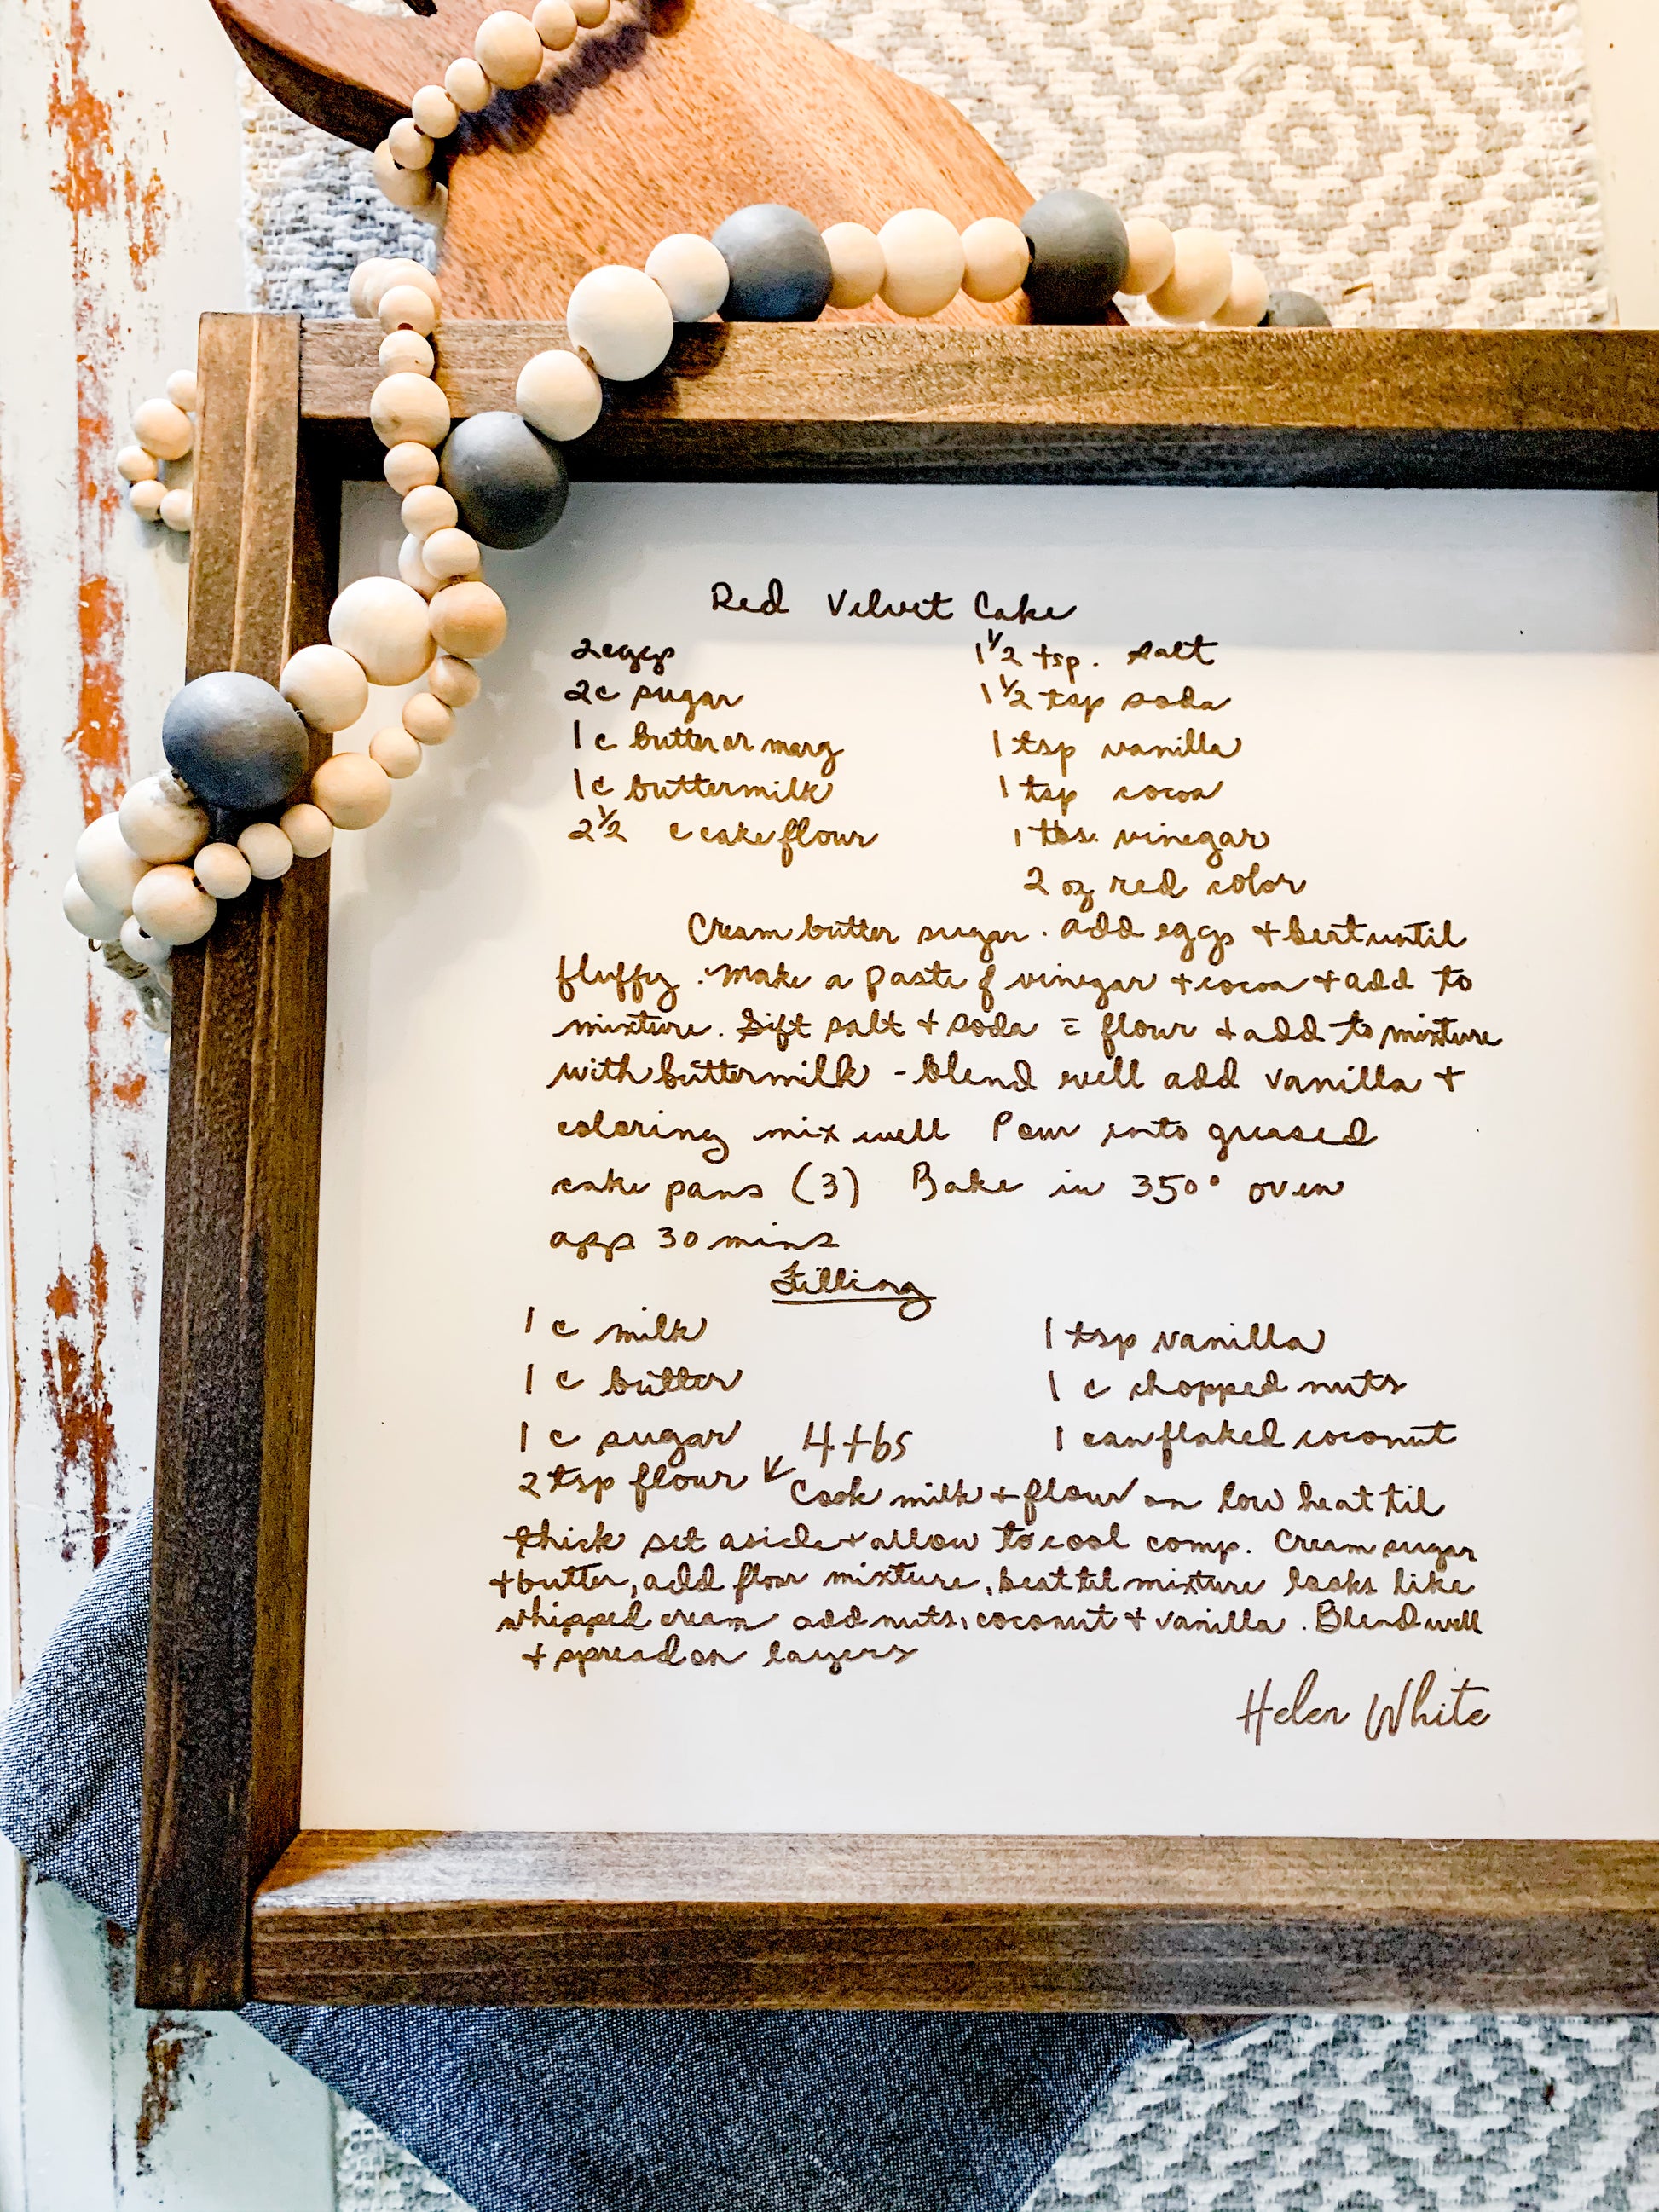 Red Velvet Cake
2 eggs 1 1/2 tsp. salt
2 c sugar 1 1/2 tsp soda
1 c butter or marg 1 tsp vanilla
1 c buttermilk 1 tsp cocoa
2 1/2 c cake flour 1 tbs. vinegar
2 oz red color
Cream butter sugar. add eggs + beat until
fluffy. Make a paste of vinegar + cocoa + add to
mixture. Sift salt + soda = flour + add to mixture
with buttermilk - blend well add vanilla +
coloring mix well Pour into greased
cake pans (3) Bake in 350° oven
app 30 mins
Filling
1 c milk 1 tsp vanilla
1 c butter 1 c chopped nuts
1 c sugar 4 tbs 1 can flaked coconut
2 tsp flour Cook milk + flour on low heat til
thick set aside + allow to cool comp. Cream sugar
+ butter, add flour mixture, beat til mixture looks like
whipped cream add nuts, coconut + vanilla. Blend well
+ spread on layers
Helen White